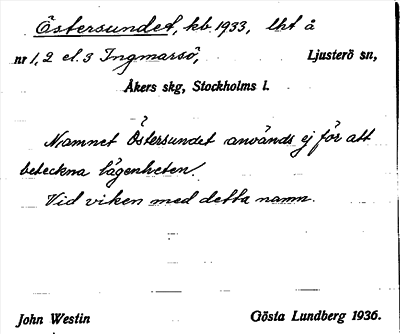 Östersundet, kb. 1933, lht å
nr 1, 2 el. 3 Ingmarsö, Ljusterö sn,
Åkers skg, Stockholms l.
Namnet Östersundet används ej för att
beteckna lägenheten.
Vid viken med detta namn.
John Westin Gösta Lundberg 1936.